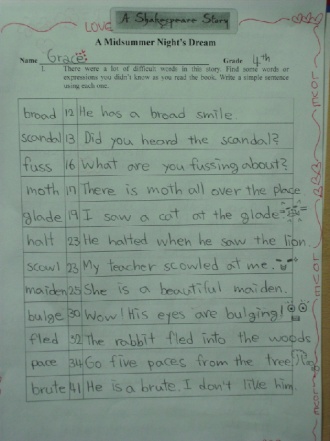 LOVE
A Shakespeare Story
A Midsummer Night's Dream
Name Grace Grade 4th
There were a lot of difficult words in this story. Find some words or
expressions you didn't know as you read the book. Write a simple sentence
using each one.
broad 12 He has a broad smile
scandal 13 Did you heard the scandal?
fuss 16 What are you fussing about?
moth 17 There is moth all over the place
glade 19 I saw a cat at the glade
halt 23 He halted when he saw the lion.
scowl 23 My teacher scowled at me.
maiden 25 She is a beautiful maiden.
bulge 30 Wow! His eyes are bulging!
fled 32 The rabbit fled into the woods
pace 34 Go five paces from the tree.
brute 41 He is a brute. I don't like him.